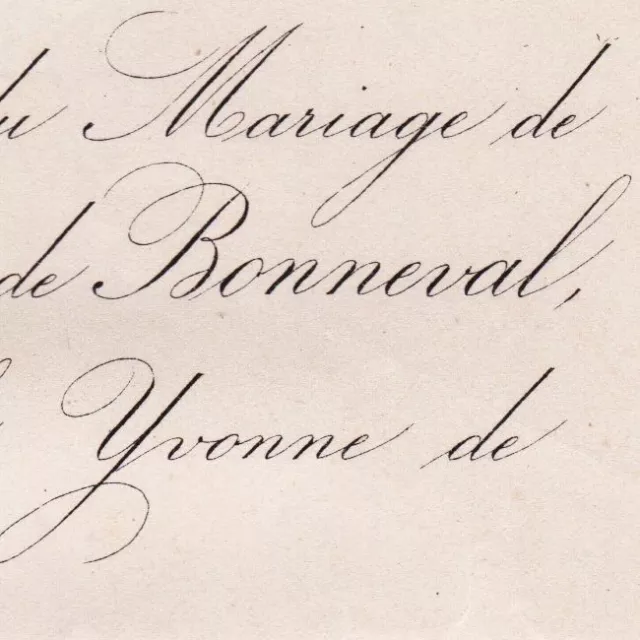 du Mariage de
de Bonneval,
Yvonne de